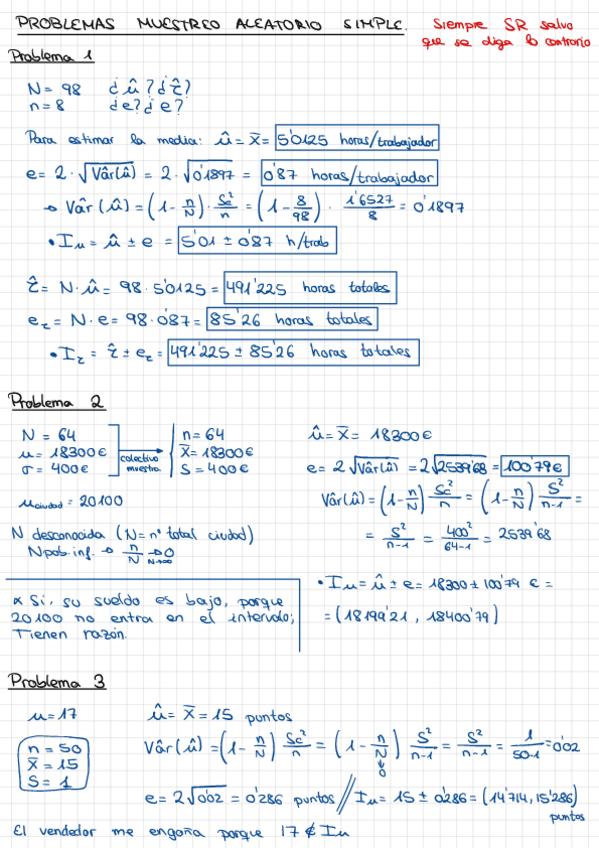 PROBLEMAS MUESTREO ALEATORIO SIMPLE. Siempre SR salvo
que se diga lo contrario
Problema 1
N = 98 ¿û? ¿τ̂?
n = 8 ¿e? ¿e?
Para estimar la media: û = x̄ = 5'0125 horas/trabajador
e = 2 · √Vâr(û) = 2 · √0'1897 = 0'87 horas/trabajador
→ Vâr(û) = (1 - n/N) · Sc²/n = (1 - 8/98) · 1'6527/8 = 0'1897
• Iu = û ± e = 5'01 ± 0'87 h/trab
τ̂ = N · û = 98 · 5'0125 = 491'225 horas totales
eτ = N · e = 98 · 0'87 = 85'26 horas totales
• Iτ = τ̂ ± eτ = 491'225 ± 85'26 horas totales
Problema 2
N = 64
u = 18300€
σ = 400€
colectivo
muestra.
n = 64
x̄ = 18300€
S = 400€
u ciudad = 20100
N desconocida (N = nº total ciudad)
N pob. inf. → n/N → 0
N→∞
û = x̄ = 18300€
e = 2√Vâr(û) = 2√2539'68 = 100'79€
Vâr(û) = (1 - n/N) Sc²/n = (1 - n/N) S²/n-1 =
= S²/n-1 = 400²/64-1 = 2539'68
• Iu = û ± e = 18300 ± 100'79 € =
= (18199'21, 18400'79)
* Si, su sueldo es bajo, porque
20100 no entra en el intervalo;
Tienen razón.
Problema 3
u = 17
n = 50
x̄ = 15
S = 1
û = x̄ = 15 puntos
Vâr(û) = (1 - n/N) Sc²/n = (1 - n/N) S²/n-1 = S²/n-1 = 1/50-1 = 0'02
↓
0
e = 2√0'02 = 0'286 puntos // Iu = 15 ± 0'286 = (14'714, 15'286)
puntos
El vendedor me engaña porque 17 ∉ Iu